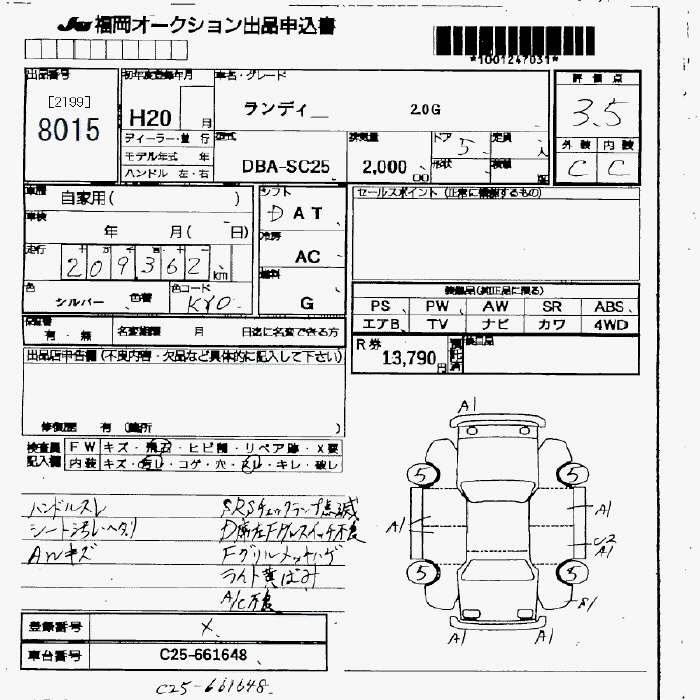 JU 福岡オークション出品申込書
*1001247031*
出品番号 初年度登録年月 車名・グレード 評価点
[2199]
8015
H20 月
ランディ 2.0G
3.5
ディーラー・並行
モデル年式 年
ハンドル 左・右
型式 排気量 ドア 定員
DBA-SC25 2,000 cc 5 人
形状 積載
外装 内装
C C
車歴 自家用( )
シフト D A T
セールスポイント (正常に機能するもの)
車検 年 月( 日)
冷房 AC
走行 209362 km
燃料 G
色 シルバー 色替 色コード KY0
装備品(純正品に限る)
PS PW AW SR ABS
エアB TV ナビ カワ 4WD
保証書 有・無 名変期限 月 日迄に名変できる方
R券 13,790円 預託済 後日品
出品店申告欄 (不良内容・欠品など具体的に記入して下さい)
修復歴 有 (箇所 )
検査員記入欄
FW キズ・飛石・ヒビ割・リペア跡・X要
内装 キズ・汚レ・コゲ・穴・スレ・キレ・破レ
ハンドルスレ SRSチェックランプ点滅
シート汚レヘタリ D席左FグルスイッチF不良
AWキズ Fグリルメッキハゲ
ライト黄ばみ
A/C不良
A1
5 5
A1 A1
U2
A1
5 5
A1
A1 A1
登録番号 X
車台番号 C25-661648
C25-661648